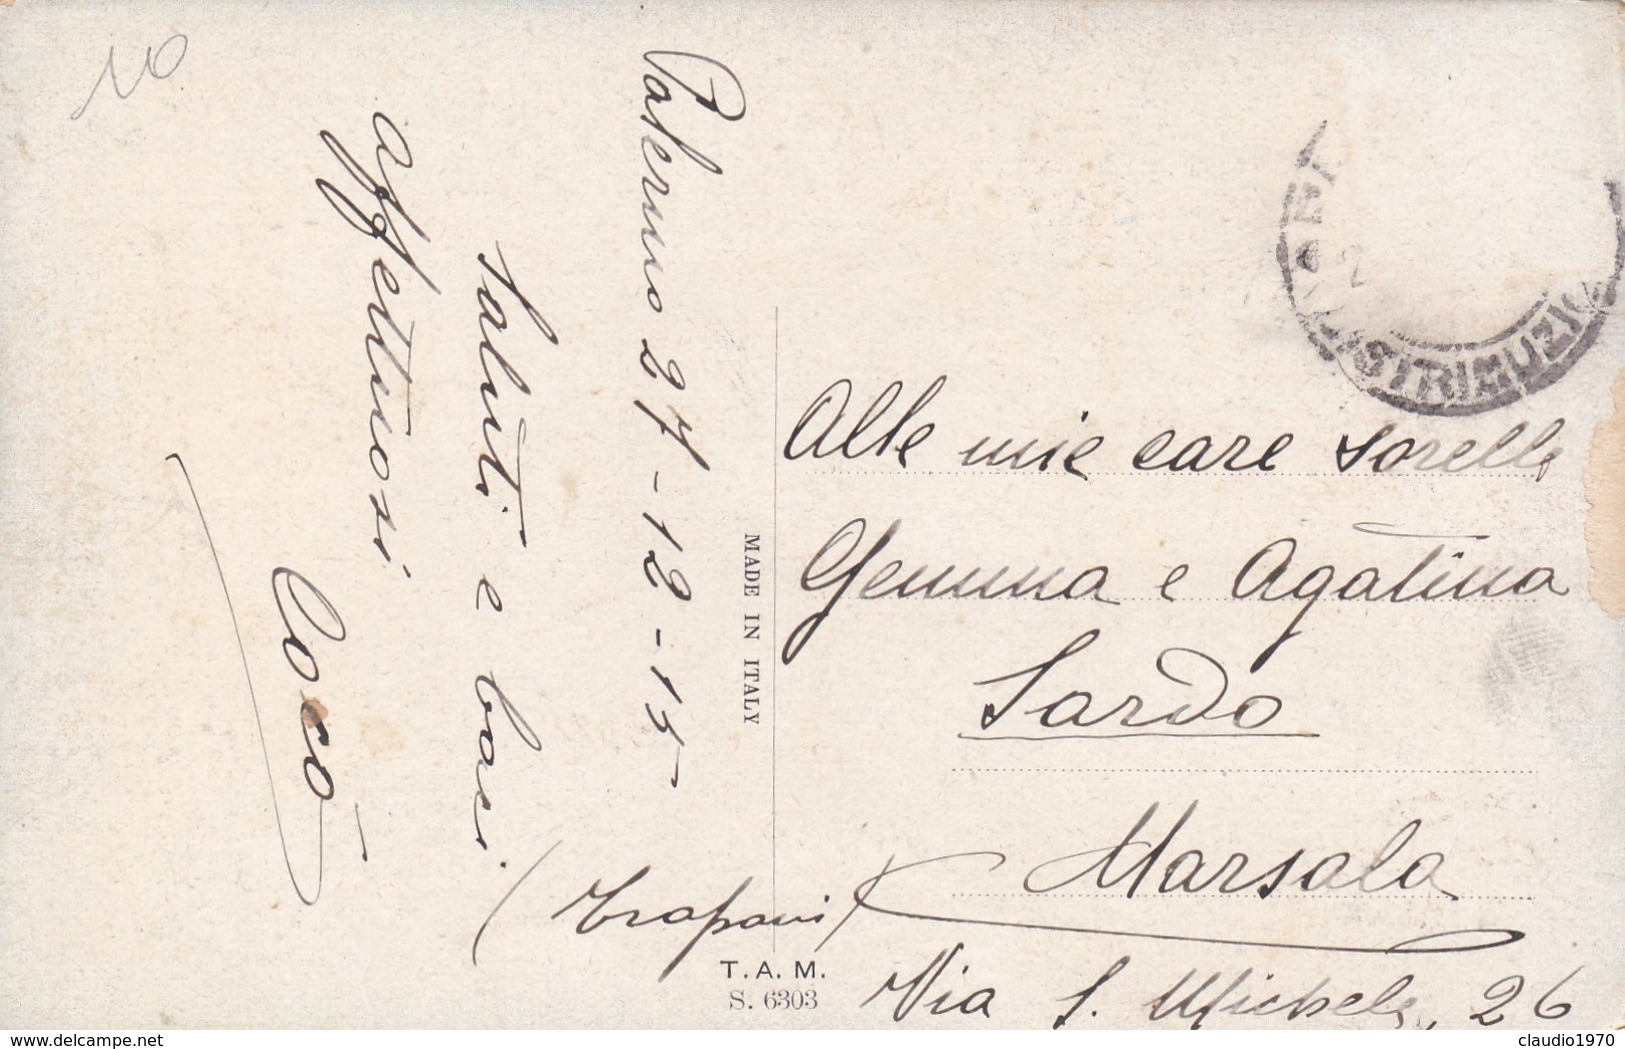 10
Palermo 27-12-15
Saluti e baci
affettuosi
Cocò
MADE IN ITALY
DISTRIBUZIO
Alle mie care sorelle
Gemma e Agatina
Sardo
Marsala
(Trapani)
Via S. Michele, 26
T. A. M.
S. 6303
delcampe.net
claudio1970